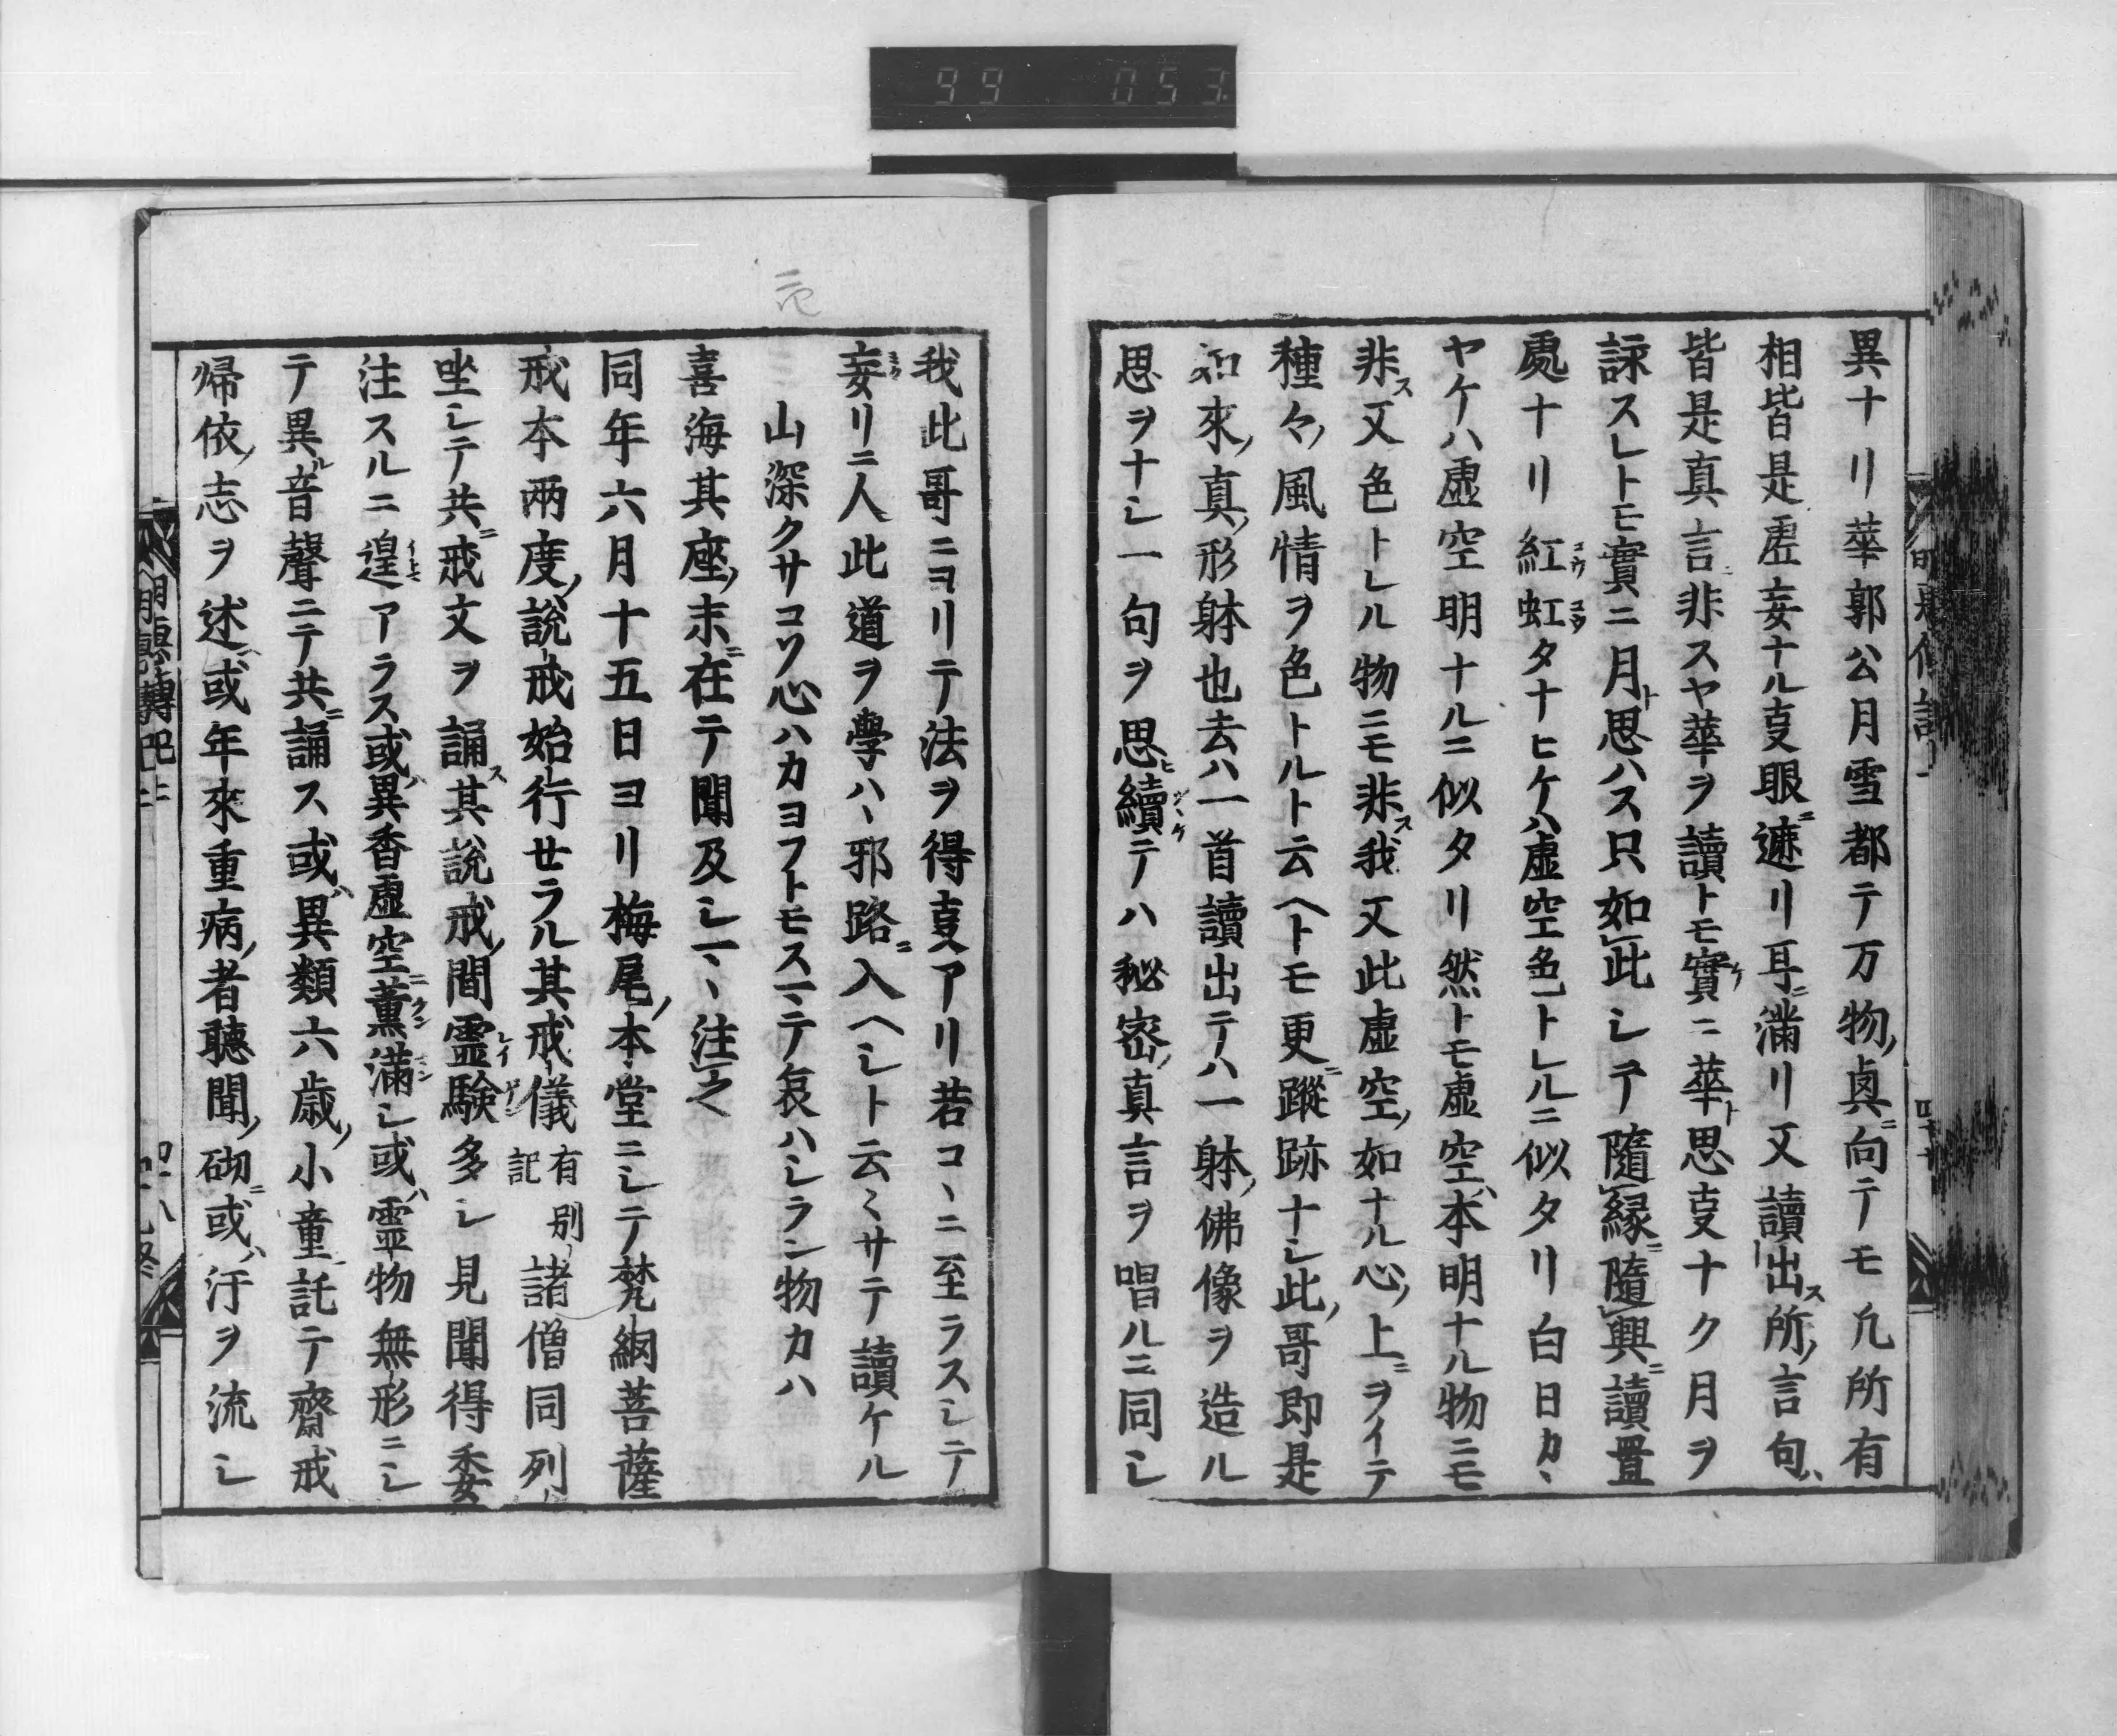 99 053
異ナリ華郭公月雪都テ万物ノ眞ニ向テモ凡所有
相皆是虚妄ナル叓眼ニ遮リ耳ニ滿リ又讀出ス所ノ言句ハ
皆是真言非スヤ華ヲ讀トモ實ケニ華ト思叓ナク月ヲ
詠スレトモ實ニ月ト思ハス只如此レシテ隨縁ニ隨興ニ讀置
處ナリ紅コウ虹コウタナヒケハ虚空色トレルニ似タリ白日カヽ
ヤケハ虚空明ナルニ似タリ然トモ虚空ハ本明ナル物ニモ
非ス又色トレル物ニモ非ス我又此虚空ノ如ナル心ノ上ニヲイテ
種々ノ風情ヲ色トルト云ヘトモ更ニ蹤跡ナシ此ノ哥即是
如來ノ真ノ形躰也去ハ一首讀出テハ一躰ノ佛像ヲ造ル
思ヲナシ一句ヲ思ヒ續ツヽケテハ秘密ノ真言ヲ唱ルニ同シ
我此哥ニヨリテ法ヲ得叓アリ若コヽニ至ラスシテ
妄リニ人此道ヲ學ハヽ邪路ニ入ヘシト云〻サテ讀ケル
山深クサコソ心ハカヨフトモスマテ哀ハシラン物カハ
喜海其座ノ末ニ在テ聞及シマヽ注之
同年六月十五日ヨリ梅尾ノ本堂ニシテ梵網菩薩
戒本兩度ノ說戒始行せラル其戒儀有別記諸僧同列ノ
坐シテ共ニ戒文ヲ誦ス其説戒ノ間霊レイ験ケン多シ見聞得委
注スルニ遑イトマアラス或ハ異香虚空ニ薰クン滿シ或ハ霊物無形ニシ
テ異ル音聲ニテ共ニ誦ス或ハ異類六歳ノ小童託テ齋戒
帰依ノ志ヲ述或ハ年來重病ノ者聽聞ノ砌ニ或ハ汗ヲ流シ
明惠傳記二